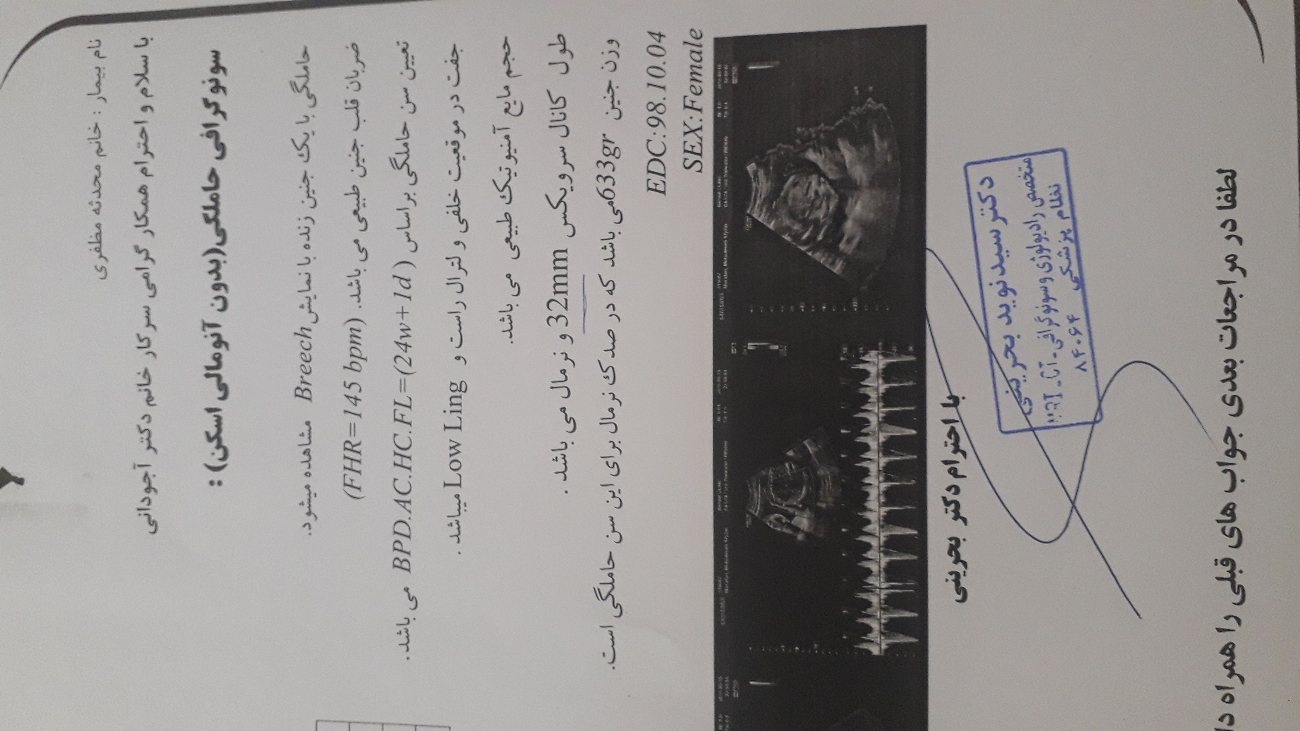 نام بیمار : خانم محدثه مظفری
با سلام و احترام همکار گرامی سرکار خانم دکتر آجودانی
سونوگرافی حاملگی(بدون آنومالی اسکن) :
حاملگی با یک جنین زنده با نمایش Breech مشاهده میشود.
ضربان قلب جنین طبیعی می باشد. (FHR=145 bpm)
تعیین سن حاملگی براساس BPD.AC.HC.FL=(24w+1d) می باشد.
جفت در موقعیت خلفی و لترال راست و Low Ling میباشد .
حجم مایع آمنیوتیک طبیعی می باشد.
طول کانال سرویکس 32mm و نرمال می باشد .
وزن جنین 633gr می باشد که در صدک نرمال برای این سن حاملگی است.
EDC:98.10.04
SEX:Female
با احترام دکتر بحرینی
دکتر سید نوید بحرینی
متخصص رادیولوژی و سونوگرافی-MRI-CT
نظام پزشکی ۸۴۰۶۴
لطفا در مراجعات بعدی جواب های قبلی را همراه دا